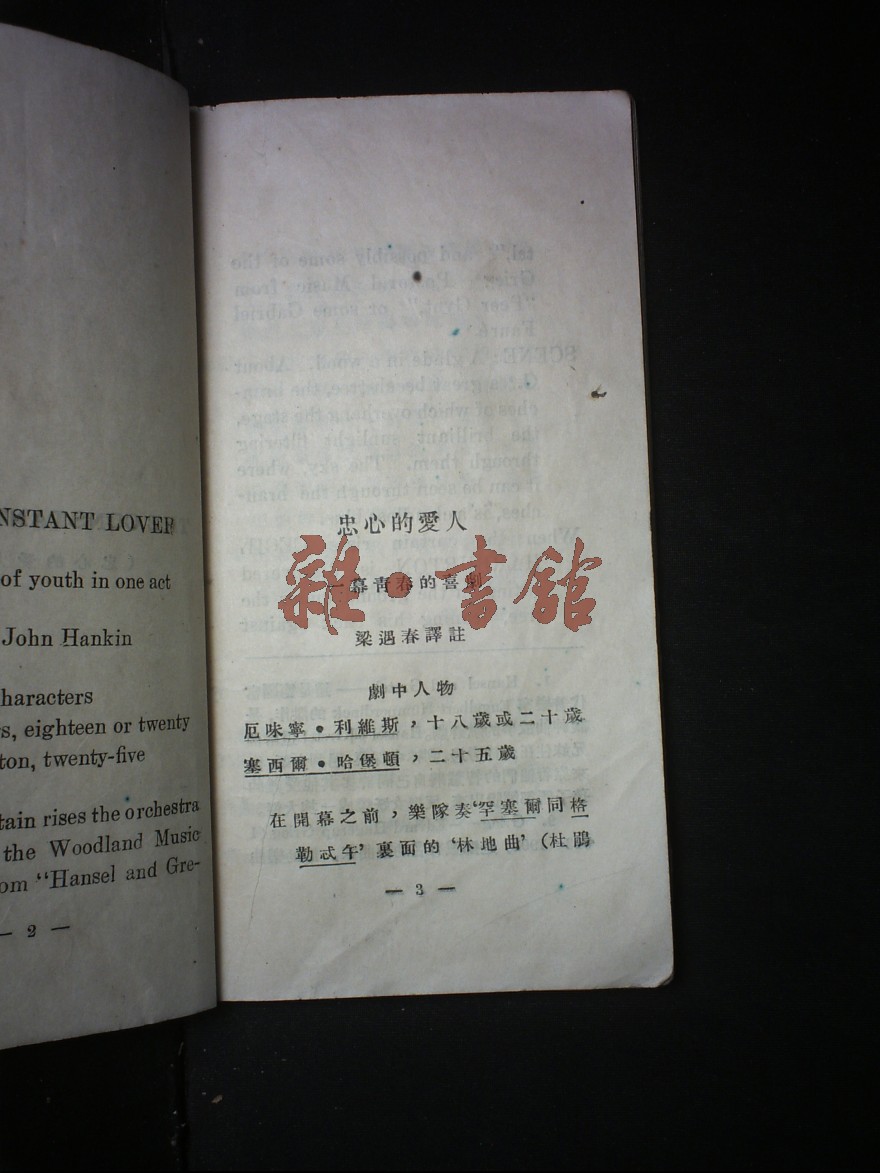 NSTANT LOVER
of youth in one act
John Hankin
haracters
s, eighteen or twenty
ton, twenty-five
tain rises the orchestra
the Woodland Music
om "Hansel and Gre-
— 2 —
忠心的愛人
一幕靑春的喜劇
雜·書館
梁遇春譯註
劇中人物
厄味寧•利維斯，十八歲或二十歲
塞西爾•哈堡頓，二十五歲
在開幕之前，樂隊奏'罕塞爾同格
勒忒午'裏面的'林地曲'（杜鵑
— 3 —